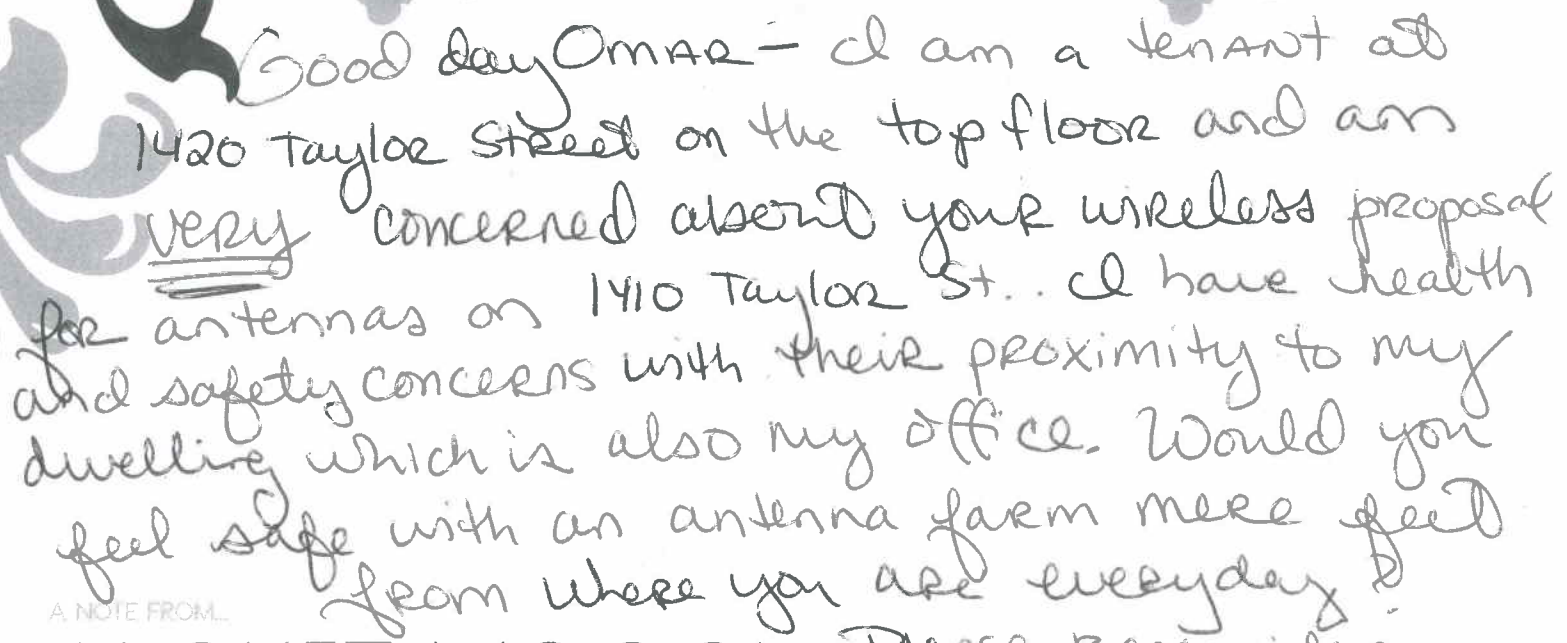 Good day Omar – I am a tenant at
1420 Taylor Street on the top floor and am
very concerned about your wireless proposal
for antennas on 1410 Taylor St.. I have health
and safety concerns with their proximity to my
dwelling which is also my office. Would you
feel safe with an antenna farm mere feet
from where you are everyday?
A NOTE FROM...